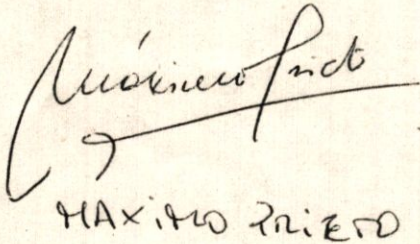 Máximo Prieto
MAXIMO PRIETO